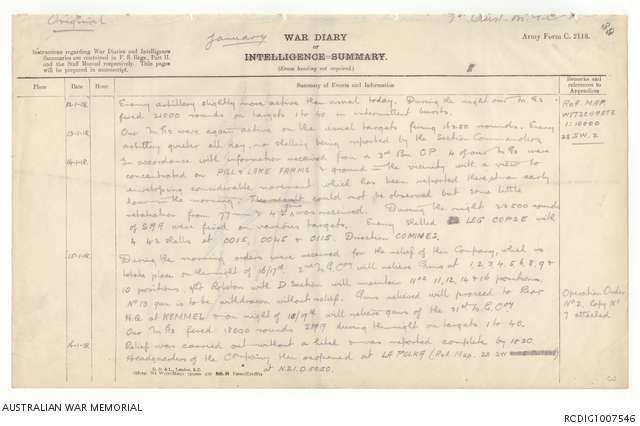 Original
January
3rd Aust. M.G.C.
WAR DIARY
or
INTELLIGENCE SUMMARY.
(Erase heading not required.)
Army Form C. 2118.
Instructions regarding War Diaries and Intelligence
Summaries are contained in F. S. Regs., Part II.
and the Staff Manual respectively. Title pages
will be prepared in manuscript.
Place
Date
Hour
Summary of Events and Information
Remarks and
references to
Appendices
12-1-18 Enemy artillery slightly more active than usual today. During the night our M.Gs
fired 21000 rounds on targets 1 to 40 in intermittent bursts.
Ref. MAP
WYTSCHAETE
1:10000
28 S.W. 2
13-1-18 Our M.Gs were again active on the usual targets firing rounds. Enemy
artillery quieter all day, no shelling being reported by the Section Commanders
14-1-18 In accordance with information received from a 3rd Bn OP 4 of our M.Gs were
concentrated on PILL & LAKE FARMS & ground in the vicinity with a view to
enveloping considerable movement which has been reported thereat an early
hour in the morning. The result could not be observed but some little
retaliation from 77mm & 4.2s was received. During the night 22500 rounds
of SAA were fired on various targets. Enemy shelled LEG COPSE with
4 42 shells at 0015, 0045 & 0115. Direction COMINES.
15-1-18 During the morning orders were received for the relief of this Company, which is
to take place on the night of 16/17th. 2nd M.G. Coy will relieve Guns at 1, 2, 3, 4, 5, 6, 8, 9 &
10 positions. Lt Ralston with D Section will man Nos 11, 12, 14 & 16 positions.
No 13 gun is to be withdrawn without relief. Guns relieved will proceed to Rear
H.Q. at KEMMEL & on night of 18/19th will relieve guns of the 21st M.G. Coy
Our M.Gs fired 18000 rounds SAA during the night on targets 1 to 40.
Operation Order
No 2. Copy No
7 attached
16-1-18 Relief was carried out without a hitch & was reported complete by 1820.
Headquarters of the Company then reopened at LA POLKA (Ref. Map. 28 SW
at N.21.D.50.50.
D. D. & L., London, E.C.